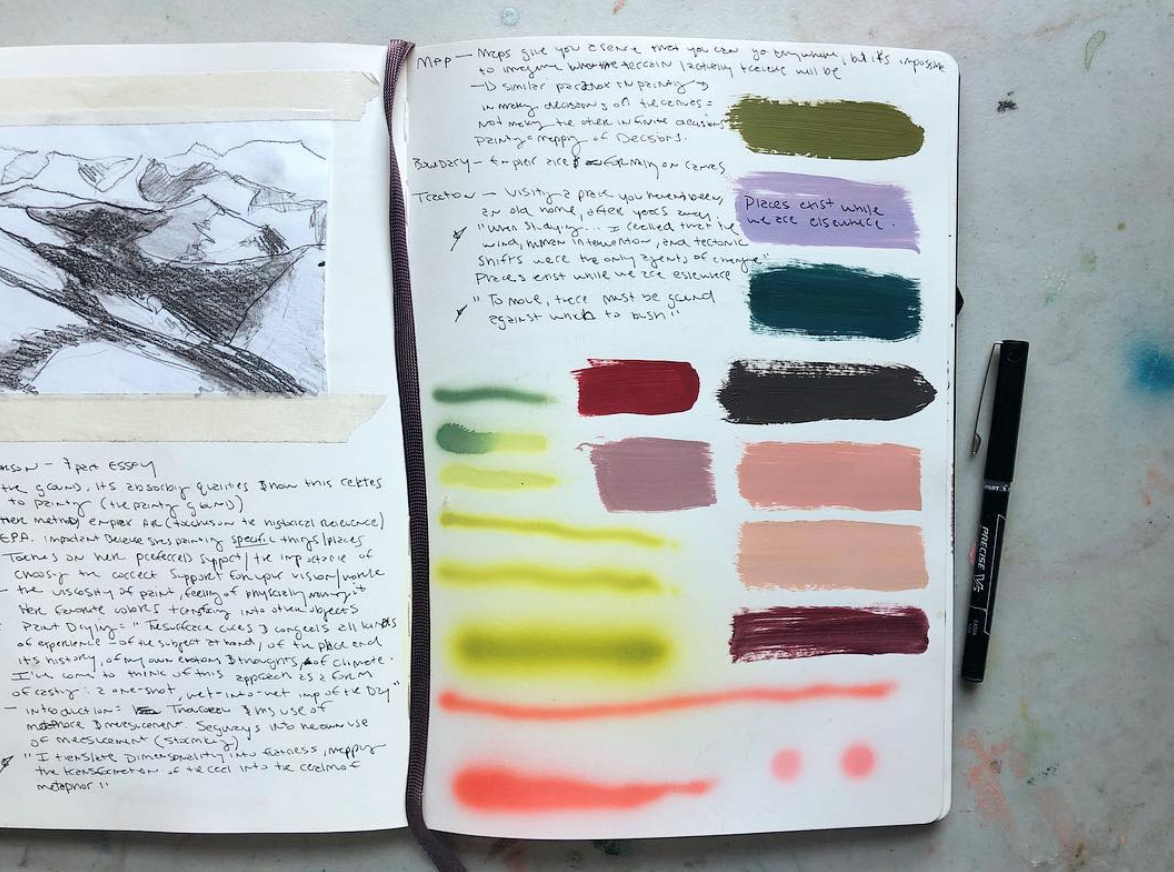 ERSON - 7 part ESSAY
the ground. Its absorbing qualities & how this relates
to painting (the painting ground)
EPA. important because shes painting specific things/places
Touches on her preferred support/the importance of
choosing the correct support for your vision/
- the viscosity of paint, feeling of physically moving it
Her favorite colors into other objects
Paint Drying = "The surface cures & congeals all kinds
of experience - of the subject at hand, of the place and
its history, of my own & thoughts, of climate.
I've come to think of this approach as a form
of casting: a one-shot, wet-into-wet of the Day"
- introduction = Thoreau & his use of
metaphore & measurement. Segways into her own use
of measurement (stormking)
"I translate Dimensionality into flatness, mapping
the transformation of the real into the realm of
metaphor!"
Map - Maps give you a sence that you can go anywhere, but it's impossible
to imagine what the terrain/actually there will be
-> similar paradox in painting ->
in making decisions on the canvas =
not making the other infinite decisions
painting = mapping of Decisions.
Boundary - on canvas
Traction - Visiting a place you havent been,
an old home, after years away,
"When studying... I realized that the
wind, human intervention, and tectonic
shifts were the only agents of change"
Places exist while we are elsewhere
"To move, there must be ground
against which to push"
Places exist while
we are elsewhere.
PRECISE V5